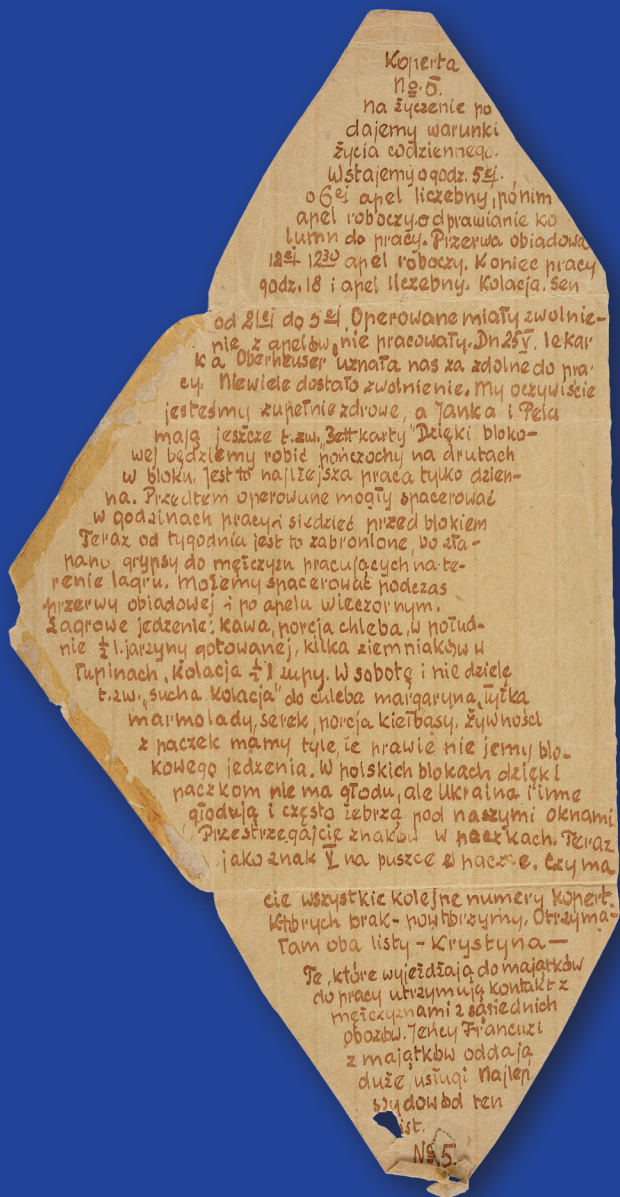 Koperta
No. 5.
na życzenie po
dajemy warunki
życia codziennego.
Wstajemy o godz. 5ej.
o 6ej apel liczebny, po nim
apel roboczy. odprawianie ko
lumn do pracy. Przerwa obiadowa
12ej 12 30 apel roboczy. Koniec pracy
godz. 18 i apel liczebny. Kolacja. Sen
od 21ej do 5ej. Operowane miały zwolnie-
nie z apelów, nie pracowały. Dn 25 V. lekar
ka Oberheuser uznała nas za zdolne do pra-
cy. Niewiele dostało zwolnienie. My oczywiście
jesteśmy zupełnie zdrowe, a Janka i Pela
mają jeszcze t.zw. „Bettkarty” Dzięki bloko-
wej będziemy robić pończochy na drutach
w bloku. Jest to najlżejsza praca tylko dzien-
na. Przedtem operowane mogły spacerować
w godzinach pracy i siedzieć przed blokiem
Teraz od tygodnia jest to zabronione, bo zła-
pano grypsy do mężczyzn pracujących na te-
renie lagru. Możemy spacerować podczas
przerwy obiadowej i po apelu wieczornym.
Łagrowe jedzenie: kawa, porcja chleba, w połud-
nie ½ l. jarzyny gotowanej, kilka ziemniaków w
łupinach, kolacja ½ l zupy. W sobotę i niedzielę
t.zw. „sucha kolacja” do chleba margaryna, łyżka
marmolady, serek, porcja kiełbasy. Żywności
z paczek mamy tyle, że prawie nie jemy blo-
kowego jedzenia. W polskich blokach dzięki
paczkom nie ma głodu, ale Ukraina i inne
głodują i często żebrzą pod naszymi oknami
Przestrzegajcie znaków w paczkach. Teraz
jako znak V na puszce w paczce. Czy ma
cie wszystkie kolejne numery kopert.
Których brak - powtórzymy. Otrzyma-
łam oba listy - Krystyna -
Te, które wyjeżdżają do majątków
do pracy utrzymują kontakt z
mężczyznami z sąsiednich
obozów. Jeńcy Francuzi
z majątków oddają
duże usługi Najlep
szy dowód ten
list.
No 5.